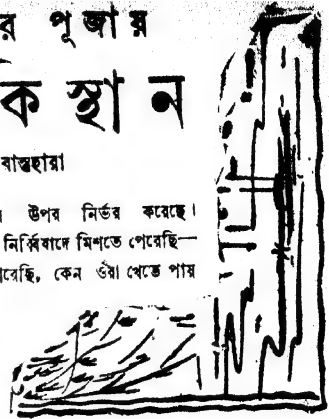 র পূজায়
ক স্থান
বাস্তুহারা
উপর নির্ভর করেছে।
নির্ব্বিবাদে মিশতে পেরেছি—
রেছি, কেন ওঁরা খেতে পায়